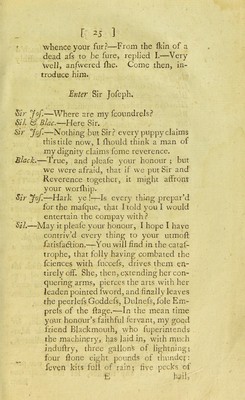 [ 25 ]
whence your fur?—From the ſkin of a
dead aſs to be ſure, replied I.—Very
well, anſwered ſhe. Come then, in-
troduce him.
Enter Sir Joſeph.
Sir Joſ.—Where are my ſcoundrels?
Sil. & Blac.—Here Sir.
Sir Joſ.—Nothing but Sir? every puppy claims
this title now, I ſhould think a man of
my dignity claims ſome reverence.
Black.—True, and pleaſe your honour; but
we were afraid, that if we put Sir and
Reverence together, it might affront
your worſhip.
Sir Joſ.—Hark ye!—Is every thing prepar'd
for the maſque, that I told you I would
entertain the compay with?
Sil.—May it pleaſe your honour, I hope I have
contriv'd every thing to your utmoſt
ſatisfaction.—You will find in the cataſ-
trophe, that folly having combated the
ſciences with ſucceſs, drives them en-
tirely off. She, then, extending her con-
quering arms, pierces the arts with her
leaden pointed ſword, and finally leaves
the peerleſs Goddeſs, Dulneſs, ſole Em-
preſs of the ſtage.—In the mean time
your honour's faithful ſervant, my good
friend Blackmouth, who ſuperintends
the machinery, has laid in, with much
induſtry, three gallons of lightning;
four ſtone eight pounds of thunder:
ſeven kits full of rain; five pecks of
E hail,